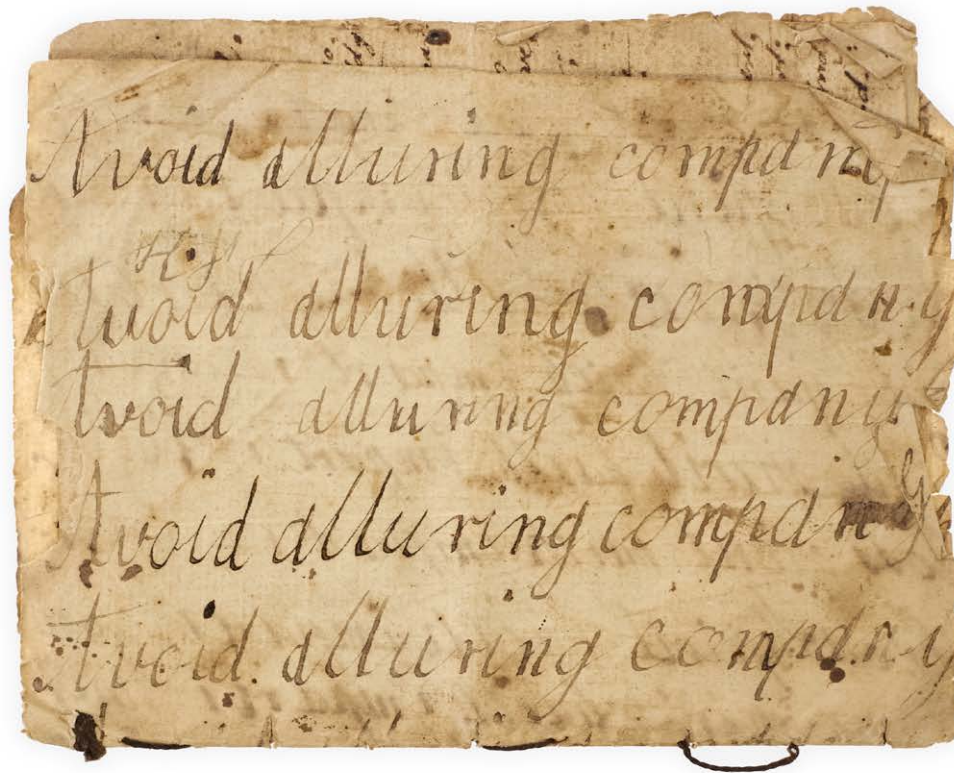 Avoid alluring company
Avoid alluring company
Avoid alluring company
Avoid alluring company
Avoid alluring company